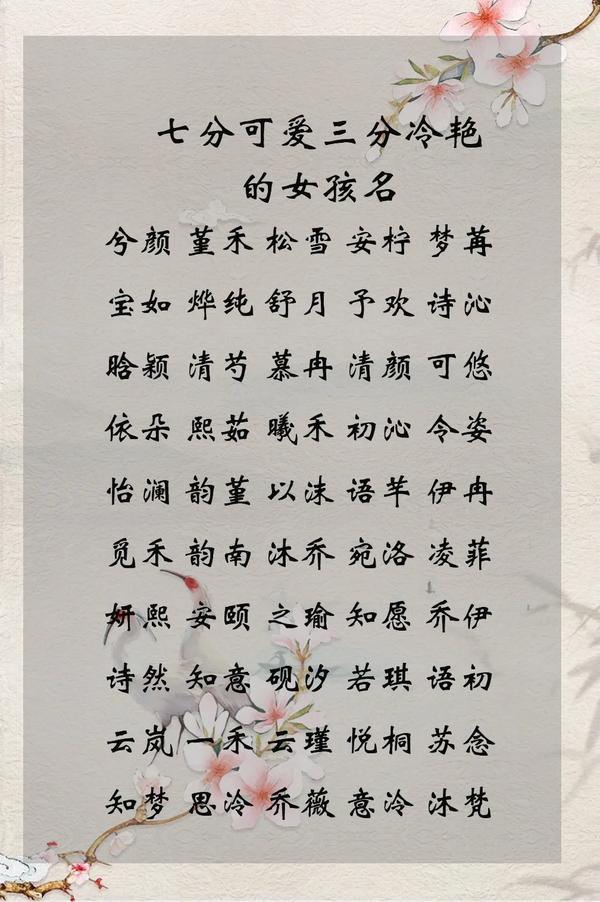 七分可爱三分冷艳
的女孩名
兮颜 堇禾 松雪 安柠 梦苒
宝如 烨纯 舒月 予欢 诗沁
晗颖 清芍 慕冉 清颜 可悠
依朵 熙茹 曦禾 初沁 令姿
怡澜 韵堇 以沫 语芊 伊冉
觅禾 韵南 沐乔 宛洛 凌菲
妍熙 安颐 之瑜 知愿 乔伊
诗然 知意 砚汐 若琪 语初
云岚 一禾 云瑾 悦桐 苏念
知梦 思泠 乔薇 意泠 沐梵